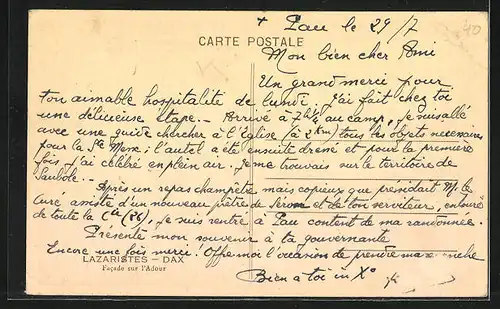 + Pau le 29/7
CARTE POSTALE
Mon bien cher Ami
Un grand merci pour
ton aimable hospitalité de lundi. J'ai fait chez toi
une délicieuse étape. - Arrivé à au camp, je suis allé
avec une guide chercher à l'Église (à 2 km) tous les objets nécessaires
pour la Ste Messe; l'autel a été ensuite dressé et pour la première
fois j'ai célébré en plein air. Je me trouvais sur le territoire de
Saubole. -
Après un repas champêtre mais copieux que présidait Mr le
Curé assisté d'un nouveau prêtre de et de ton serviteur, entouré
de toute la Cie (26), je suis rentré à Pau content de ma randonnée.
Présente mon souvenir à ta gouvernante
Encore une fois merci! Offre-moi l'occasion de prendre ma revanche
LAZARISTES - DAX
Façade sur l'Adour
Bien à toi in Xº